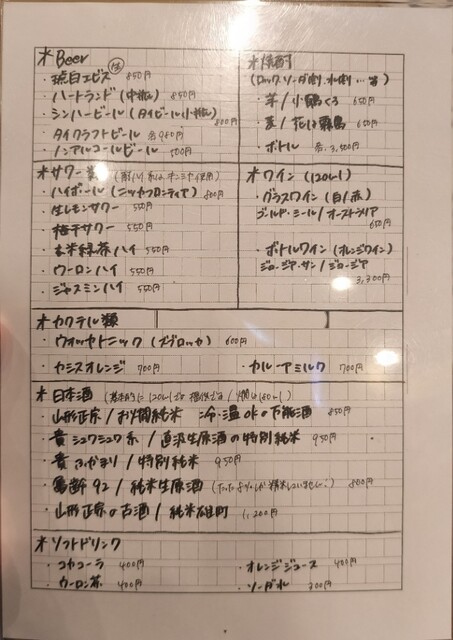 * Beer 生
・琥珀エビス 850円
・ハートランド (中瓶) 850円
・シンハービール (タイビール小瓶) 800円
・タイクラフトビール 各980円
・ノンアルコールビール 500円
*焼酎
(ロック、ソーダ割、水割…等)
・芋/小鶴くろ 650円
・麦/ 650円
・ボトル 各3,500円
*サワー
・ハイボール (ニッカフロンティア) 800円
・生レモンサワー 550円
・梅干サワー 550円
・玄米緑茶ハイ 550円
・ウーロンハイ 550円
・ジャスミンハイ 550円
*ワイン (120ml)
・グラスワイン (白/赤)
ゴールド・ミール/オーストラリア
650円
・ボトルワイン (オレンジワイン)
ジョージア・サン/ジョージア
3,300円
*カクテル類
・ウォッカトニック (ズブロッカ) 600円
・カシスオレンジ 700円
・カルーアミルク 700円
*日本酒 (基本的に120mlでの提供です/燗は180ml)
・山形正宗/お燗純米 冷・温okの万能酒 850円
・貴 シュワシュワ系/直汲生原酒の特別純米 950円
・貴 ふかまり/特別純米 950円
・亀齢 92/純米生原酒 (たった8%しか精米していません。) 800円
・山形正宗の古酒/純米雄町 1,200円
*ソフトドリンク
・コカコーラ 400円
・ウーロン茶 400円
・オレンジジュース 400円
・ソーダ水 300円